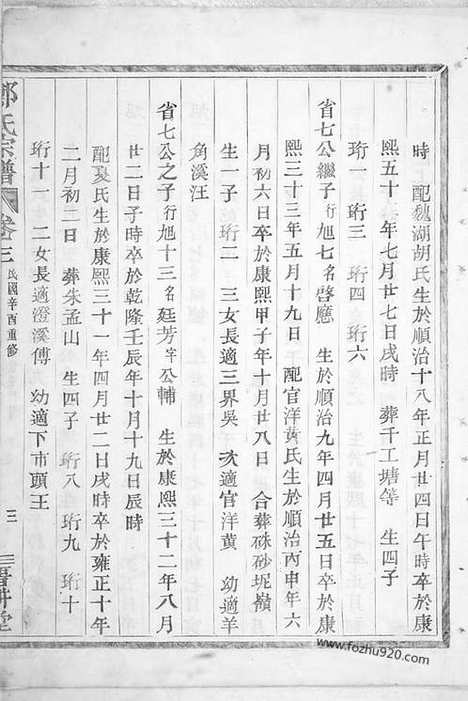 時　配魏湖胡氏生於順治十八年正月廿四日午時卒於康
熙五十　年七月廿七日戌時　葬千工塘等　生四子
珩一　珩三　珩四　珩六
省七公繼子行旭七名啓應　生於順治九年四月廿五日卒於康
熙三十三年五月十九日　配官洋黃氏生於順治丙申年六
月初六日卒於康熙甲子年十月廿八日　合葬硃砂坭嶺
生一子　珩二　三女長適三界吳　次適官洋黄　幼適羊
角溪汪
省七公之子行旭十三名廷芳字公輔　生於康熙三十二年八月
廿二日子時卒於乾隆壬辰年十月十九日辰時
配夏氏生於康熙三十一年四月廿二日戌時卒於雍正十年
二月初二日　葬朱孟山　生四子　珩八　珩九　珩十
珩十一　二女長適澄溪傅　幼適下市頭王
鄭氏宗譜　卷三　民國辛酉重修　三　書帶堂
www.fozhu920.com